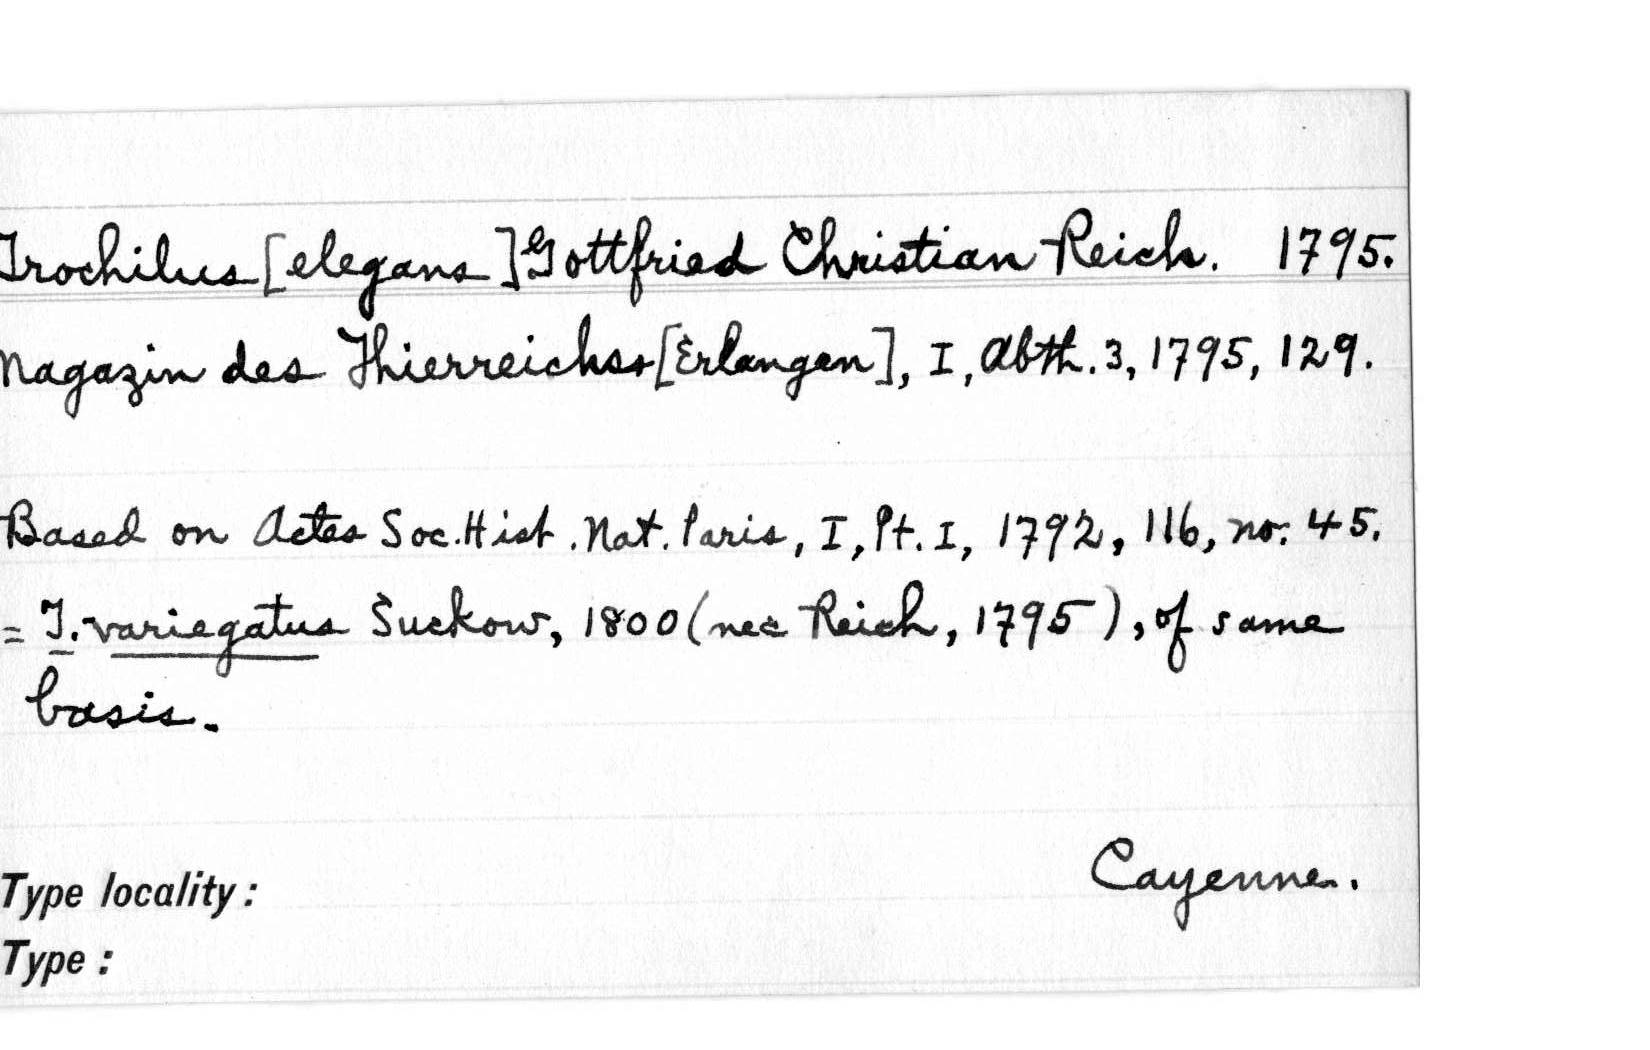 Trochilus [elegans] Gottfried Christian Reich. 1795.
Magazin des Thierreichs [Erlangen], I, Abth. 3, 1795, 129.
Based on Actes Soc. Hist. Nat. Paris, I, Pt. I, 1792, 116, no. 45.
= T. variegatus Suckow, 1800 (nec Reich, 1795), of same
basis.
Type locality: Cayenne.
Type: